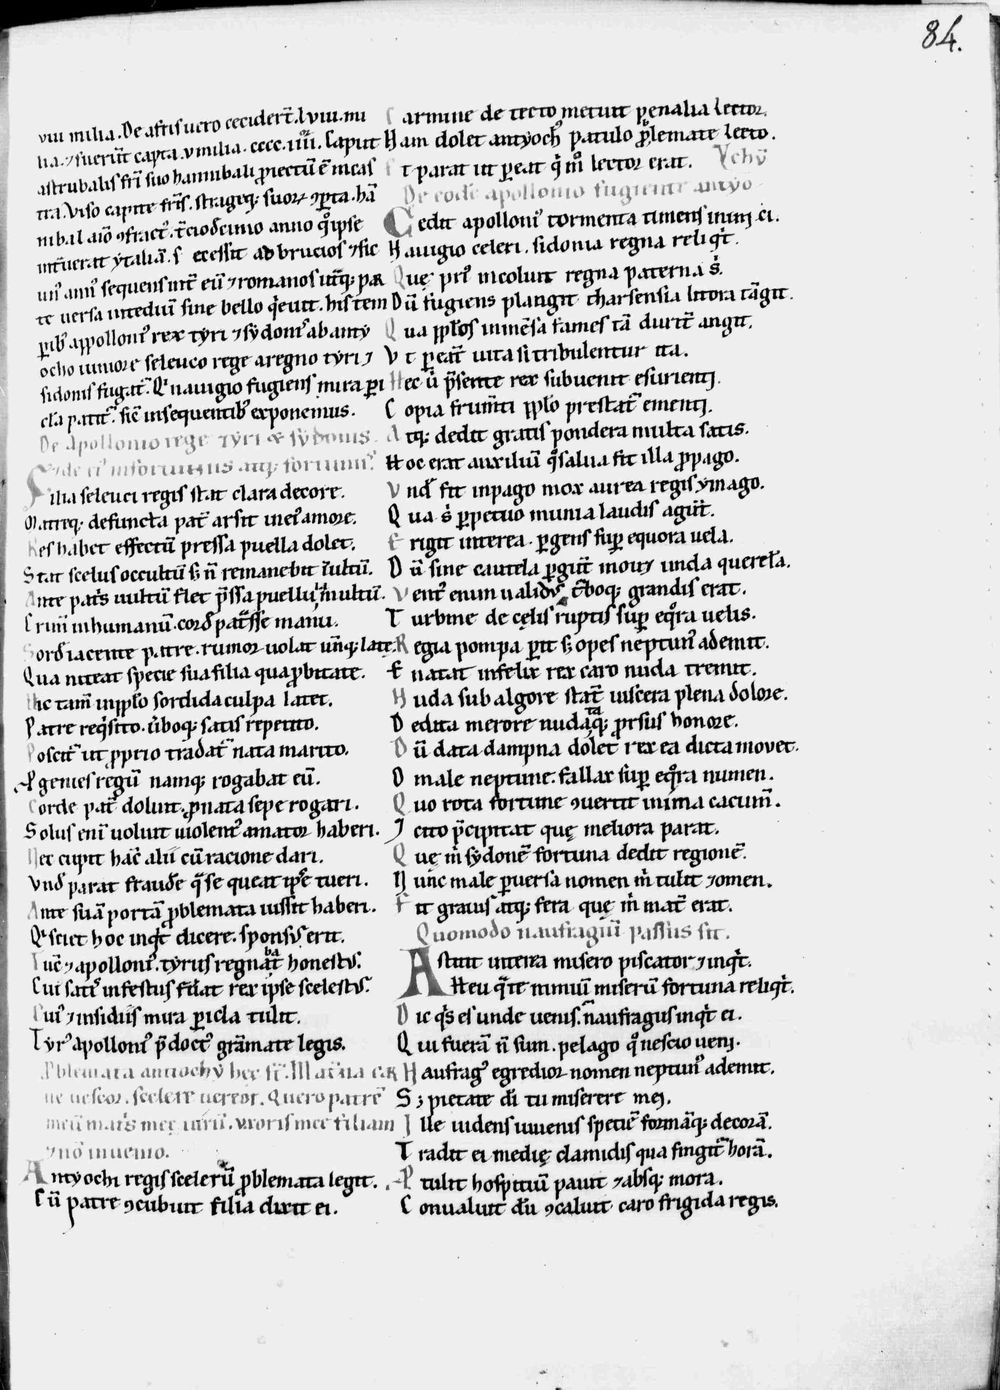 84.
viii milia. De afris uero cecidert̄. lviii. mi
lia. ⁊ fuerūt capta. v milia. cccc. iiii. Caput
astrubalis fr̄i suo hannibali ꝓiectū ē in cas
tra. Viso capite fr̄is. strageq; suoꝝ ꝯꝑta. hā
nibal aīo ꝯfract᷒. t̄ciodecimo anno qͦ ipse
int̄uerat ytaliā. s ecessit ad brucios ⁊ sic
un᷒ ann᷒ sequens int̄ eū ⁊ romanos utq̄ꝫ ꝑ
te uersa intediū sine bello q̇euit. his tem
ꝑib᷒ appolloni᷒ rex tyri ⁊ sydonis ab anty
ocho iuniore seleuco rege a regno tyri ⁊
sidonis fugat᷒. Qͥ nauigio fugiens mira ꝑi
cla patit᷒. sic̄ insequentib᷒ exponemus.
De apollonio rege tyri & sydonis.
⁊ de ei᷒ infortuniis atq; fortunis.
Filia seleuci regis stat clara decore.
Matreq; defuncta pat̄ arsit in ei᷒ amore.
Res habet effectū pressa puella dolet.
Stat scelus occultū sꝫ n̄ remanebit inultū.
Ante patͥs uultū flet p̄ssa puella tumultū.
Crim̄ inhumanū. cord̄ pat̄sse manu.
Sord̄ iacente patre. rumor uolat un̄q; late.
Qua niteat specie sua filia qua ꝓbitate.
Hic tam̄ in ꝓl̄o sordida culpa latet.
Patre req̇sito. ūboq; satis repetito.
Poscit᷒ ut ꝓprio tradat᷒ nata marito.
Agenies regū namq; rogabat eū.
Corde pat̄ doluit. ꝓ nata sepe rogari.
Solus eni᷒ uoluit uiolent᷒ amator haberi.
Nec cupit hāc alii cū racione dari.
Vnd̄ parat fraud̄e q̄ se queat ipse tueri.
Ante suā portā ꝓblemata iussit haberi.
Qͥ sciet hoc inqͥt dicere. sponsus erit.
Tūc ⁊ apolloni᷒. tyrus regnabat honestus.
Cui satis infestus fiat rex ipse scelestus.
Cui᷒ ⁊ insidiis mira ꝑicla tulit.
Tyr᷒ apolloni᷒ p̄doct᷒ grāmate legis.
Pblemata antiochy hec st̄. Mat̄na car
ne uescor. scelere uereor. Quero patrē
meū matͥs mee uirū. uxoris mee filiam
⁊ nō inuenio.
Antyochi regis scelerū ꝓblemata legit.
Cū patre ꝯcubuit filia dixit ei.
Carmine de tecto metuit penalia lector.
Nam dolet antyoch᷒ patulo ꝓblemate lecto.
Et parat ut pereat qͥ m̊ lector erat.
De eode apollonio fugiente antyo
chū
Cedit apolloni᷒ tormenta timens inimici.
Nauigio celeri. sidonia regna reliqͥt.
Quę pri᷒ incoluit regna paterna s̄.
Dū fugiens plangit tharsensia litora tāgit.
Qua ꝓpl̄os inmēsa fames tā durit᷒ angit.
Vt ꝑeat᷒ uita si tribulentur ita.
Hec ū p̄sente rex subuenit esurienti.
Copia frum̄ti ꝓpl̄o prestat᷒ ementi.
Atq; dedit gratis pondera multa satis.
Hoc erat auxiliū qͦ salua fit illa ꝓpago.
Vnd̄ fit in pago mox aurea regis ymago.
Qua s̄ ꝑpetuo munia laudis agūt.
Erigit interea. ꝑgens suꝑ equora uela.
Dū sine cautela ꝑgūt mouꝫ unda querela.
Vent᷒ enim ualidus, t̄boq; grandis erat.
Turbine de cęlis ruptis suꝑ eqͦra uelis.
Regia pompa ꝑit sꝫ opes neptun᷒ ademit.
Enatat infelix rex caro nuda tremit.
Nuda sub algore stat̄ uiscera plena dolore.
Dedita merore nudataq; ꝓrsus honore.
Dū data dampna dolet rex ea dicta mouet.
O male neptune. fallax suꝑ eqͦra numen.
Quo rota fortune ꝯuertit in ima cacum̄.
Icito p̄cipitat quę meliora parat.
Que m̄ sydonē fortuna dedit regionē.
Nunc male ꝑuersa nomen m̄ tulit ⁊ omen.
Fit grauis atq; fera quę m̄ mat̄ erat.
Quomodo naufragiū passus sit.
Astitit interea misero piscator ⁊ inqͥt.
Heu q̄ te nimiū miserū fortuna reliqͥt.
Dic qͥs es unde uenis. naufragus inqͥt ei.
Qui fuerā n̄ sum. pelago qͦ nescio ueni.
Naufrag᷒ egredior nomen neptun᷒ ademit.
S; pietate di̅ tu miserere mei.
Ille uidens iuuenis speciē formāq; decorā.
Tradit ei medię clamidis qua fingit᷒ horā.
Attulit hospitiū pauit ⁊ absq; mora.
Conualuit dū ꝯcaluit caro frigida regis.